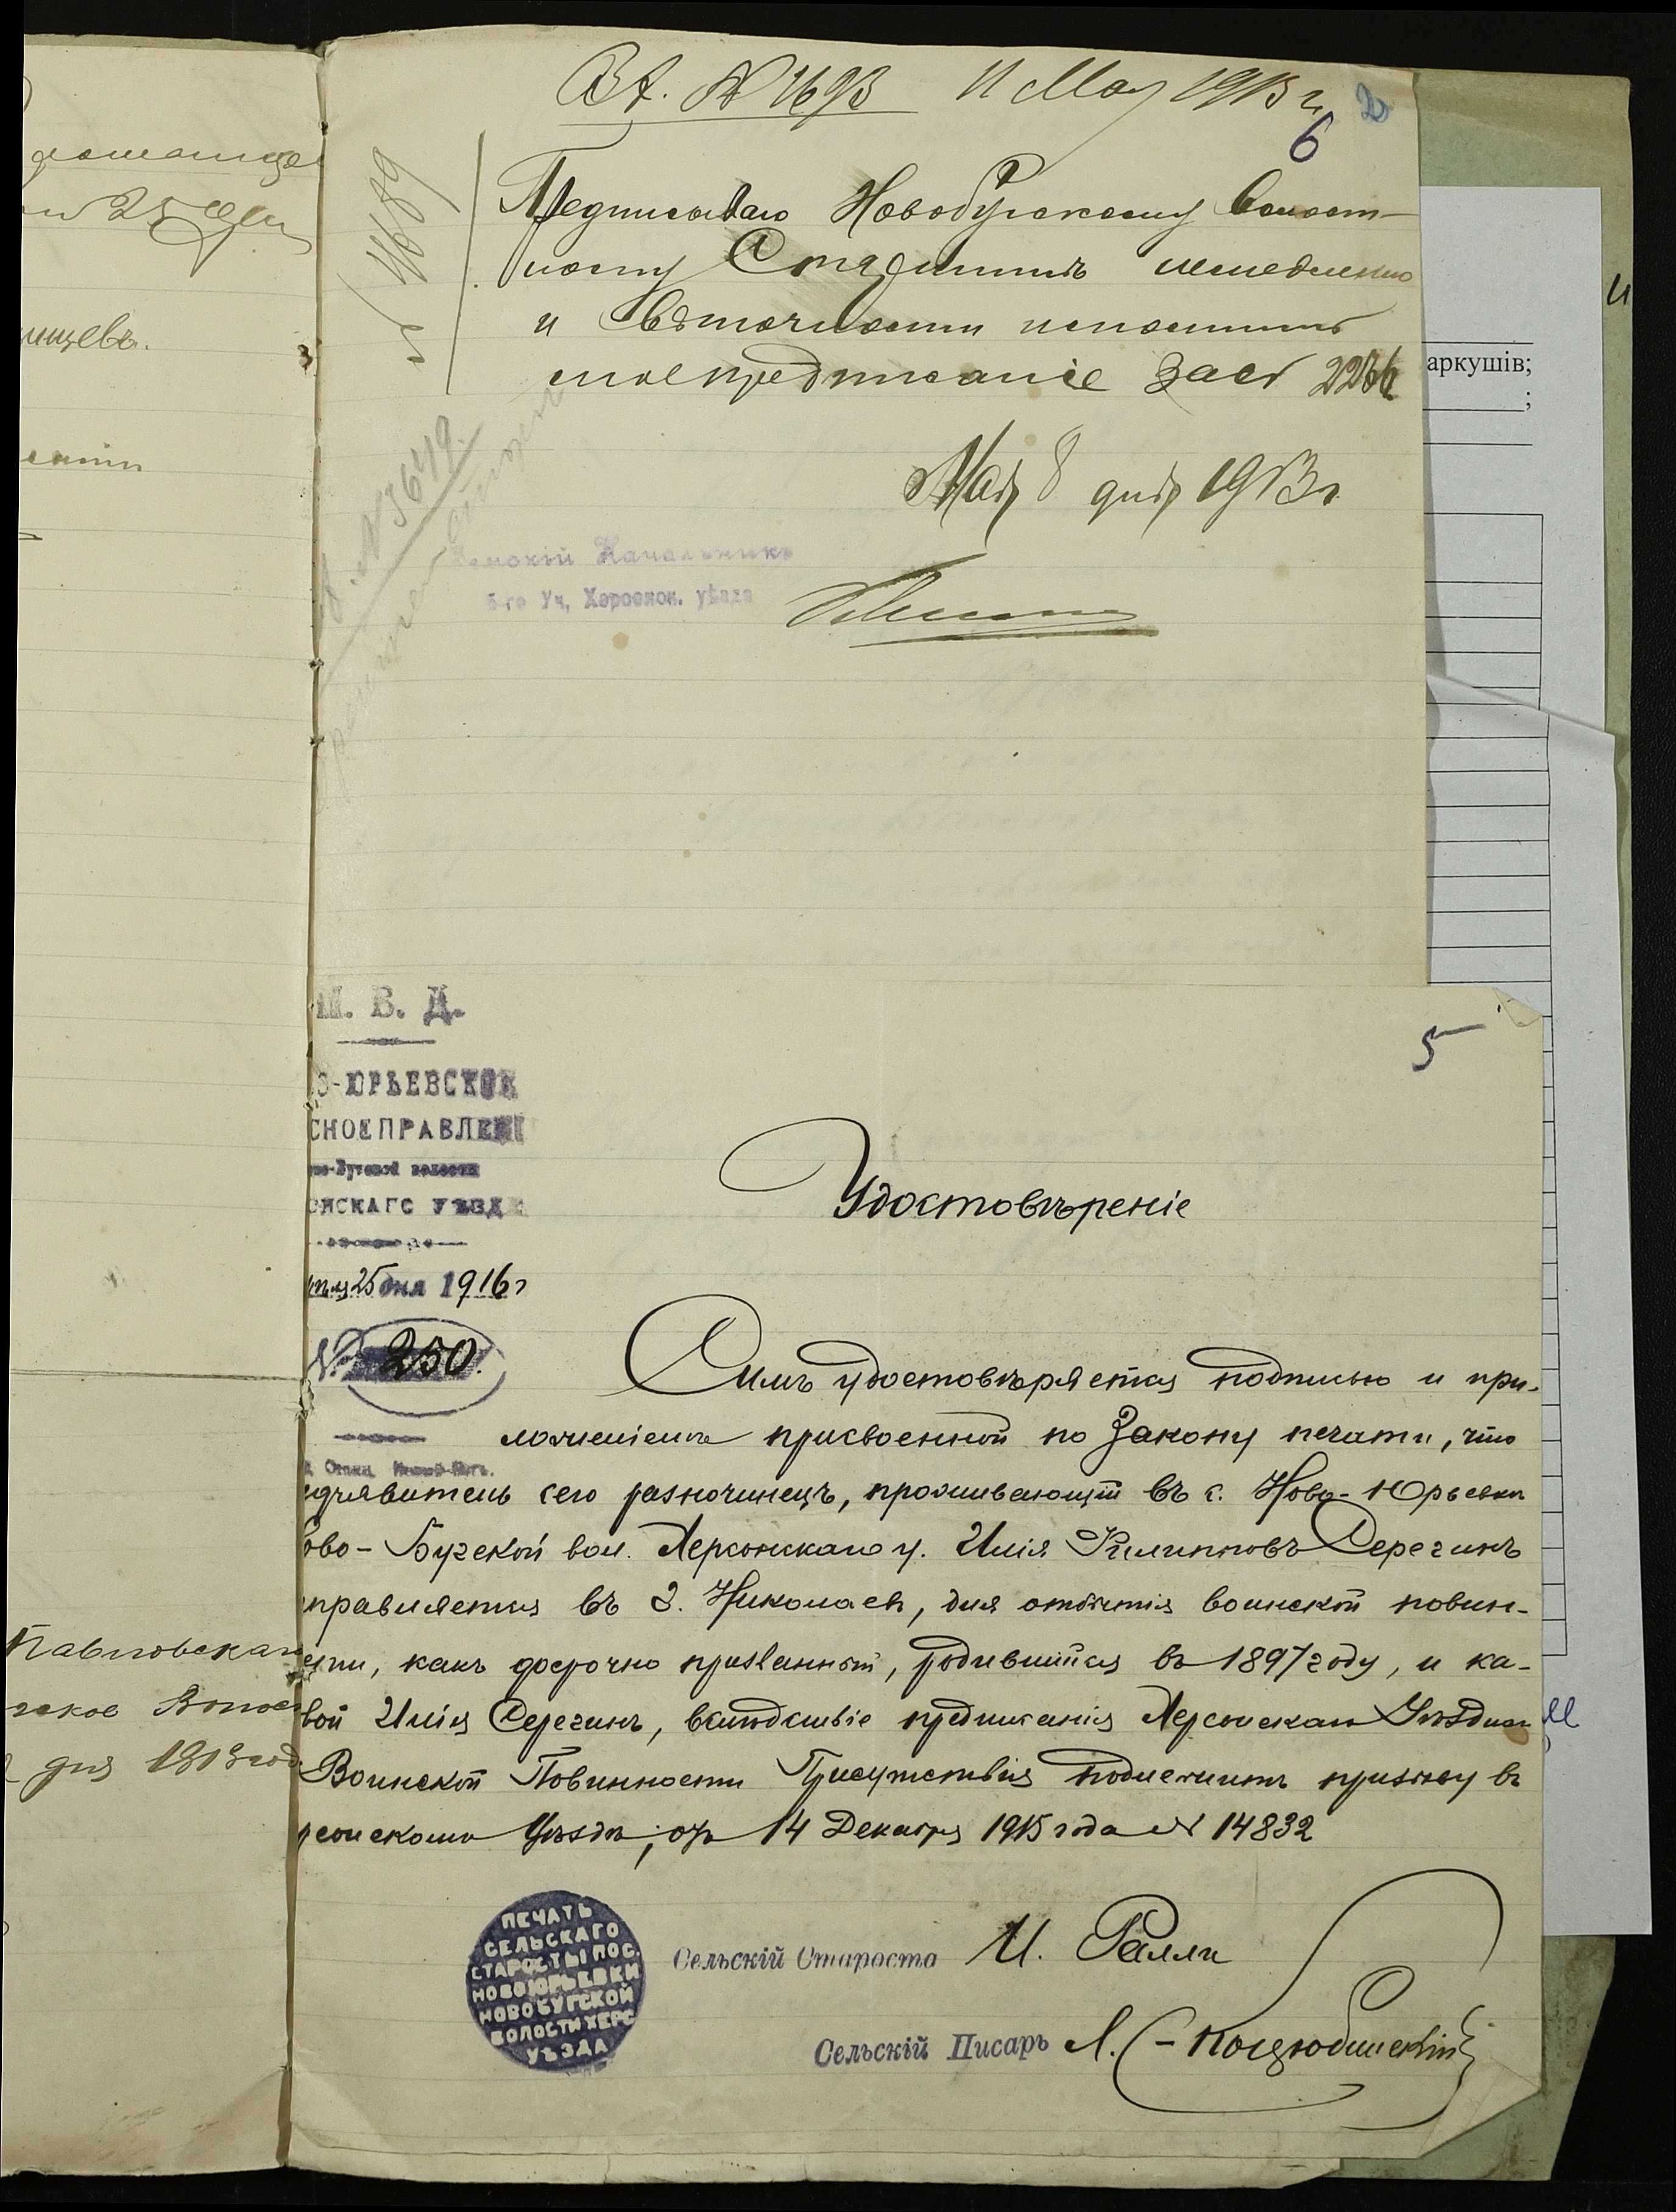 Вх. № 1693 11 Мая 1913 г.
2
6
№ 4689
Предписываю Новобугскому Волост-
ному Старшинѣ немедленно
и въ точности исполнить
мое предписаніе за № 2276
Мая 8 дня 1913 г.
№ 3649.
Земскій Начальникъ
5-го Уч. Херсонск. уѣзда
аркушів;
;
нищевъ.
М. В. Д.
5
О-ЮРЬЕВСКОЕ
СКОЕ ПРАВЛЕНІЕ
во-Бугской волости
ОНСКАГО УѢЗДА
25 дня 1916 г
№ 250.
Удостовѣреніе
Симъ удостовѣряется подписью и при-
ложеніемъ присвоенной по Закону печати, что
едъявитель сего разночинецъ, проживающій въ с. Ново-Юрьевки
ово-Бугской вол. Херсонскаго у. Илія Филипповъ Серегинъ
правляется въ г. Николаевъ, для отбытія воинской повин-
сти, какъ досрочно призванный, родившійся въ 1897 году, и ка-
вой Илія Серегинъ, вслѣдствіе предписанія Херсонскаго Уѣзднаго
Воинской Повинности Присутствія подлежитъ призыву въ
рсонскомъ Уѣздѣ, отъ 14 Декабря 1915 года № 14832
Павловскаго
ское Волос
дня 1913 год
ПЕЧАТЬ
СЕЛЬСКАГО
СТАРОСТЫ ПОС.
НОВОЮРЬЕВКИ
НОВОБУГСКОЙ
ВОЛОСТИ ХЕРС.
УѢЗДА
Сельскій Староста И. Ралли
Сельскій Писарь Л. Коцюбинскій